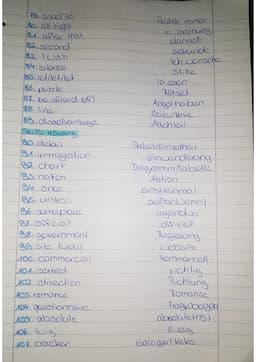 79. used to früher immer
80. all right in Ordnung
81. after that danach
82. second sekunde
83. I wish Ich wünsche
84. silence Stille
85. let/let/let lassen
86. puzzle Rätsel
87. be afraid (of) Angst haben
88. line
89. disadvantage Nachteil
Skills training
90. detail Detail/Einzelheit
91. immigration Einwanderung
92. chart Diagramm/Tabelle
93. nation Nation
94. once einst/einmal
95. unless außer/wenn
96. someplace irgendwo
97. official offiziell
98. government Regierung
99. site (web) Website
100. commercial kommerziell
101. correct richtig
102. direction Richtung
103. romance Romanze
104. questionnaire Fragebogen
105. absolute absolute(rst)
106. twig Zweig
107. cracker salziger Keks